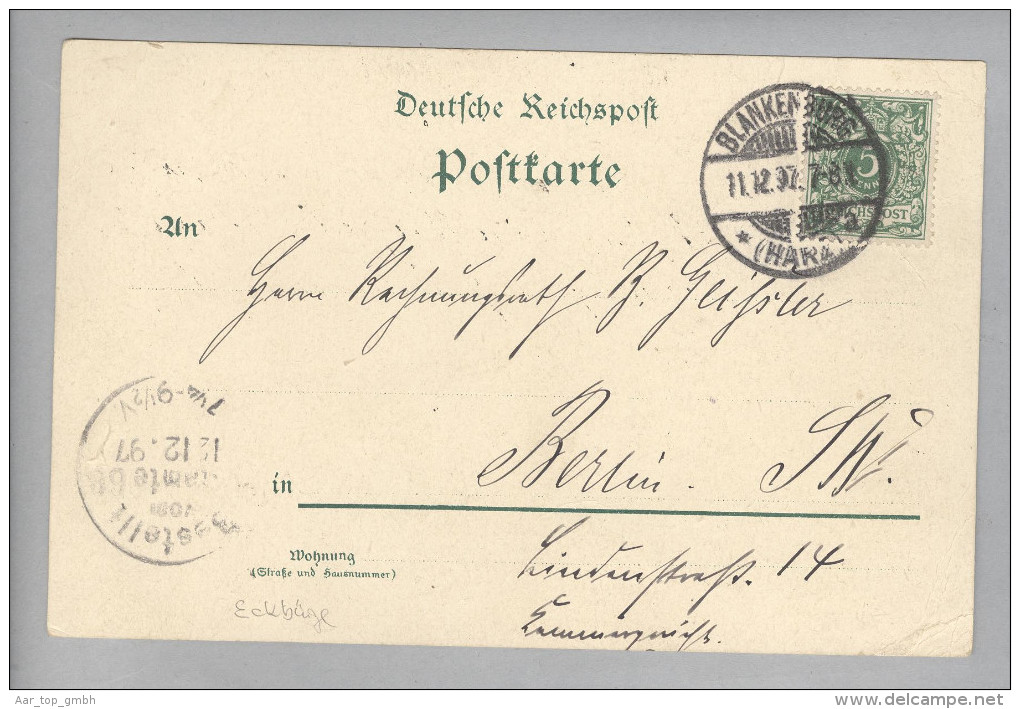 Deutsche Reichspost
Postkarte
BLANKENBURG
11.12.97. 7-8
* (HARZ)
5
REICHSPOST
An
Herrn Rechnungsrath B. Geißler
in Berlin SW.
Wohnung
(Straße und Hausnummer)
Lindenstraße. 14
Kammergericht.
Bestellt
vom
Postamte
12.12.97
7¼-9½V.
Eckbüge
Aar_top_gmbh
www.delcampe.net